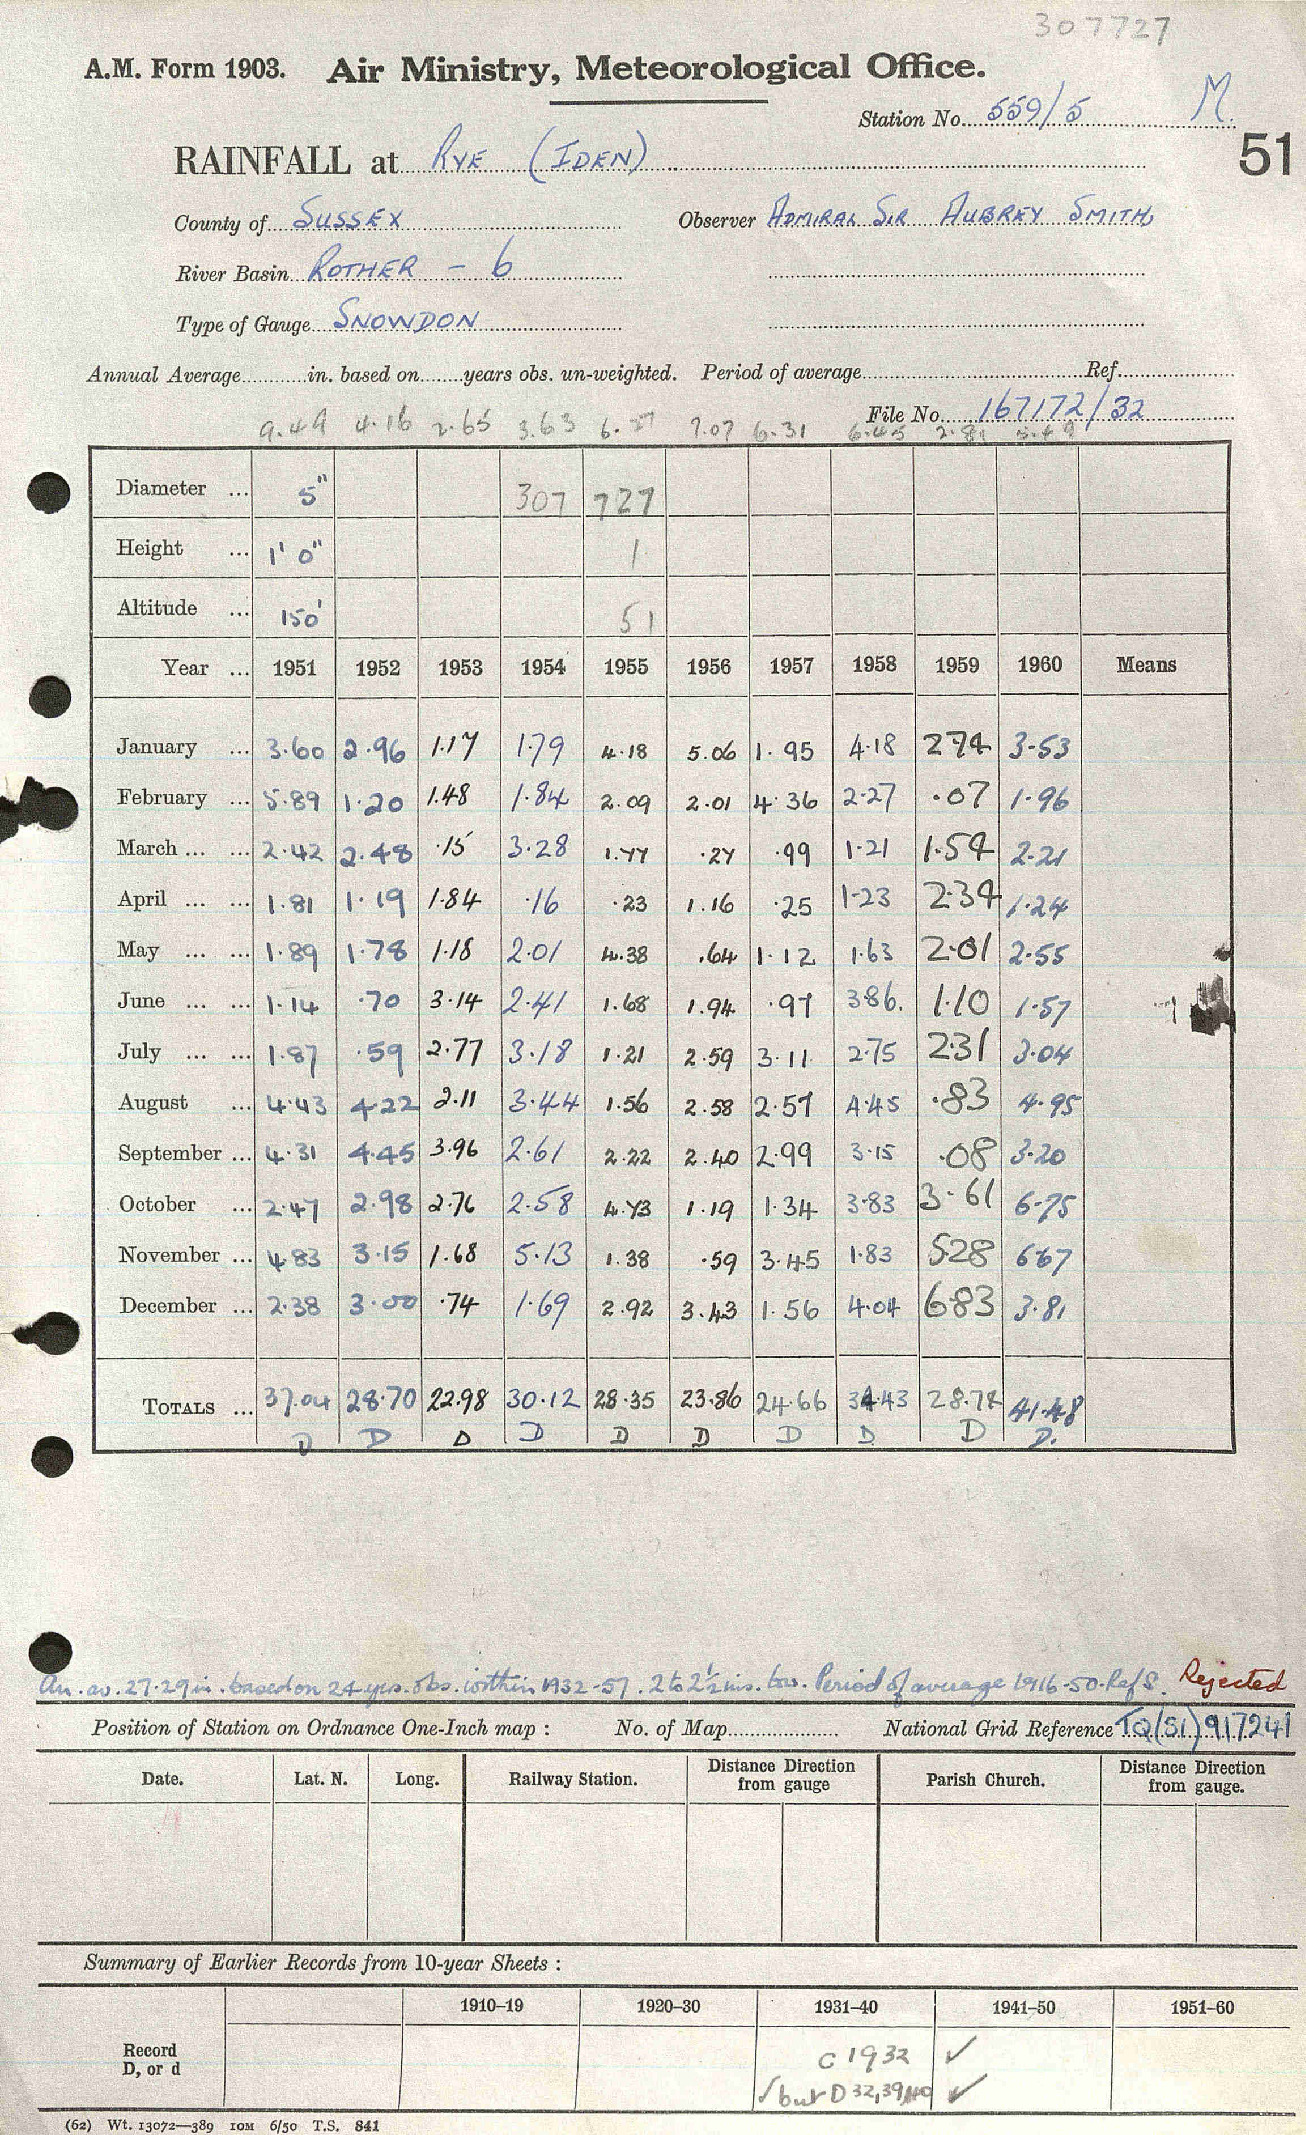 307727
A.M. Form 1903. Air Ministry, Meteorological Office.
Station No. 559/5 M.
RAINFALL at RYE (IDEN) 51
County of SUSSEX Observer ADMIRAL SIR AUBREY SMITH,
River Basin ROTHER - 6
Type of Gauge SNOWDON
Annual Average in. based on years obs. un-weighted. Period of average Ref.
File No. 167172/32
9.49 4.16 2.65 3.63 6.27 7.07 6.31 6.45 2.81 5.49
Diameter ... 5" 307 727
Height ... 1' 0" 1
Altitude ... 150' 51
Year ... 1951 1952 1953 1954 1955 1956 1957 1958 1959 1960 Means
January ... 3.60 2.96 1.17 1.79 4.18 5.06 1.95 4.18 2.74 3.53
February ... 5.89 1.20 1.48 1.84 2.09 2.01 4.36 2.27 .07 1.96
March ... ... 2.42 2.48 .15 3.28 1.77 .27 .99 1.21 1.54 2.21
April ... ... 1.81 1.19 1.84 .16 .23 1.16 .25 1.23 2.34 1.24
May ... ... 1.89 1.78 1.18 2.01 4.38 .64 1.12 1.63 2.01 2.55
June ... ... 1.14 .70 3.14 2.41 1.68 1.94 .97 3.86. 1.10 1.57
July ... ... 1.87 .59 2.77 3.18 1.21 2.59 3.11 2.75 2.31 3.04
August ... 4.43 4.22 2.11 3.44 1.56 2.58 2.57 4.45 .83 4.95
September ... 4.31 4.45 3.96 2.61 2.22 2.40 2.99 3.15 .08 3.20
October ... 2.47 2.98 2.76 2.58 4.73 1.19 1.34 3.83 3.61 6.75
November ... 4.83 3.15 1.68 5.13 1.38 .59 3.45 1.83 5.28 6.67
December ... 2.38 3.00 .74 1.69 2.92 3.43 1.56 4.04 6.83 3.81
TOTALS ... 37.04 28.70 22.98 30.12 28.35 23.86 24.66 34.43 28.74 41.48
D D D D D D D D D D.
An. av. 27.29 in. based on 24 yrs. obs. within 1932-57. 2 to 2½ ins. low. Period of average 1916-50. Ref S. Rejected
Position of Station on Ordnance One-Inch map : No. of Map National Grid Reference TQ(51)917241
Date. Lat. N. Long. Railway Station. Distance Direction from gauge Parish Church. Distance Direction from gauge.
Summary of Earlier Records from 10-year Sheets :
1910–19 1920–30 1931–40 1941–50 1951–60
Record C 1932 ✓
D, or d ✓ but D 32,39,40 ✓
(62) Wt. 13072—389 10M 6/50 T.S. 841